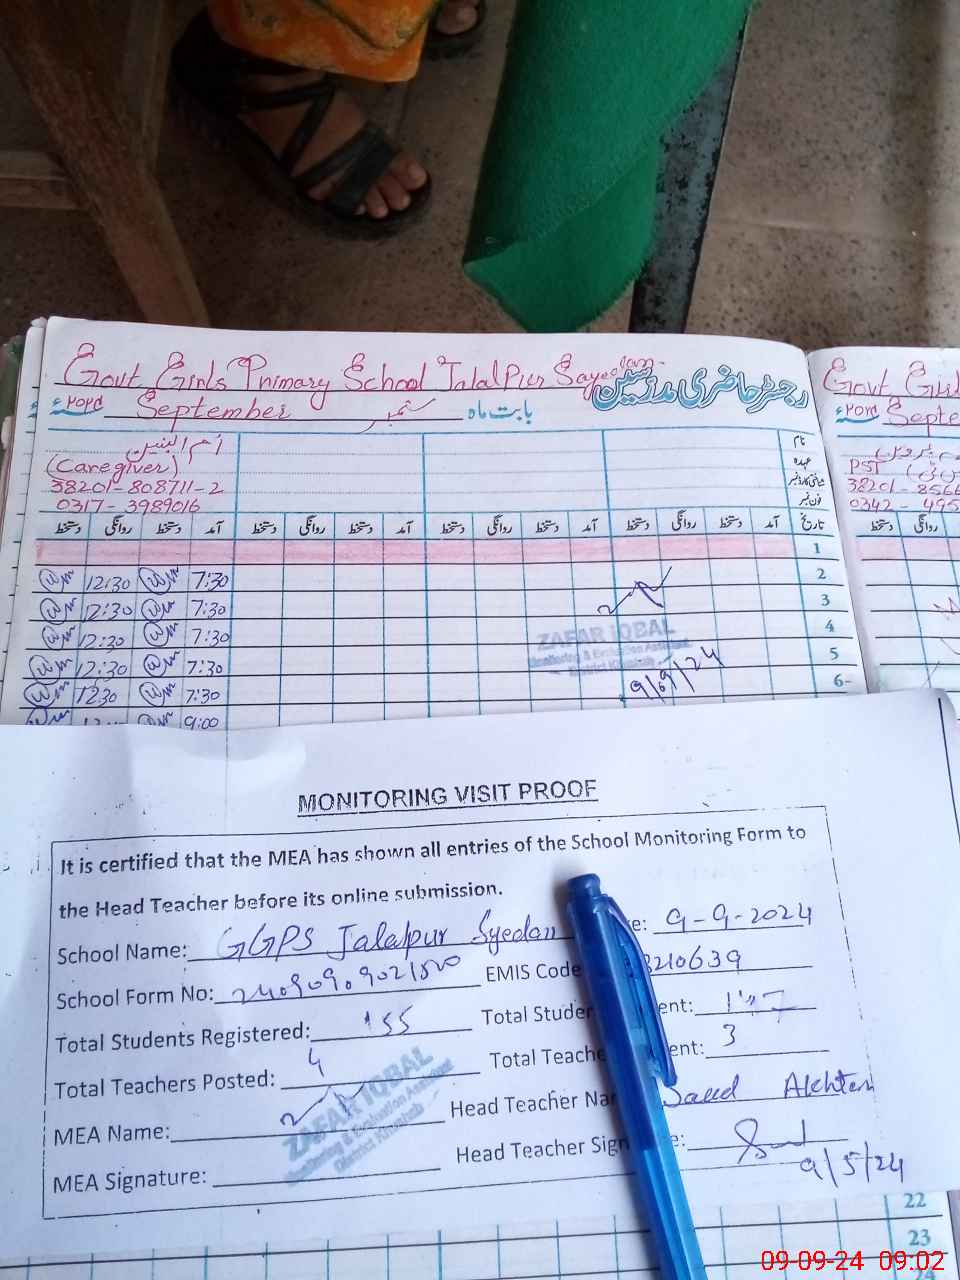 Govt Girls Primary School Jalalpur Sayedan
رجسٹر حاضری مدرسین
بابت ماہ ستمبر September ۲۰۲۴ء
نام
عہدہ
شناختی کارڈ نمبر
فون نمبر
ام البنین
(Caregiver)
38201-808711-2
0317-3989016
تاریخ آمد دستخط روانگی دستخط آمد دستخط روانگی دستخط آمد دستخط روانگی دستخط آمد دستخط روانگی دستخط
1
2 7:30 12:30
3 7:30 12:30
4 7:30 12:30
5 7:30 12:30
6- 7:30 12:30
9:00
ZAFAR IQBAL
Monitoring & Evaluation Assistant
District Khushab
9/9/24
Govt Girl
۲۰۲۴ء Septe
PST
38201-8566
0342-495
دستخط روانگی
MONITORING VISIT PROOF
It is certified that the MEA has shown all entries of the School Monitoring Form to
the Head Teacher before its online submission.
School Name: GGPS Jalalpur Syedan e: 9-9-2024
School Form No: EMIS Code 8210639
Total Students Registered: 155 Total Studen ent:
Total Teachers Posted: 4 Total Teache ent: 3
MEA Name: Head Teacher Na Saeed Akhter
ZAFAR IQBAL
Monitoring & Evaluation Assistant
District Khushab
MEA Signature: Head Teacher Sign e:
9/5/24
22
23
24
09-09-24 09:02